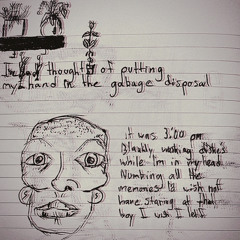 I've had thoughts of putting
my hand in the gabage disposal
it was 3:00 pm
Blankly washing dishes
while I'm in my head
Numbing all the
memories I wish not
have staring at that
boy I wish I left